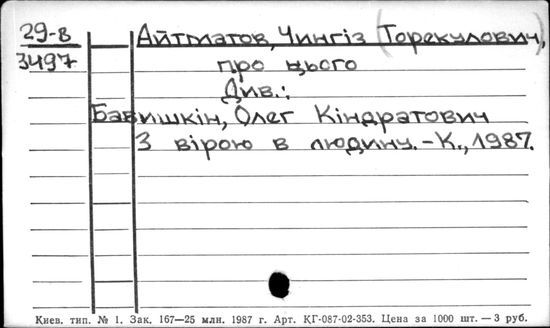 29-в
3497
Айтматов, Чингіз (Торекулович),
про цього
Див.:
Бавишкін, Олег Кіндратович
З вірою в людину. – К., 1987.
Киев. тип. № 1. Зак. 167—25 млн. 1987 г. Арт. КГ-087-02-353. Цена за 1000 шт. — 3 руб.